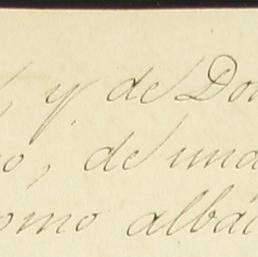 , y de Do
o, de una
omo albá